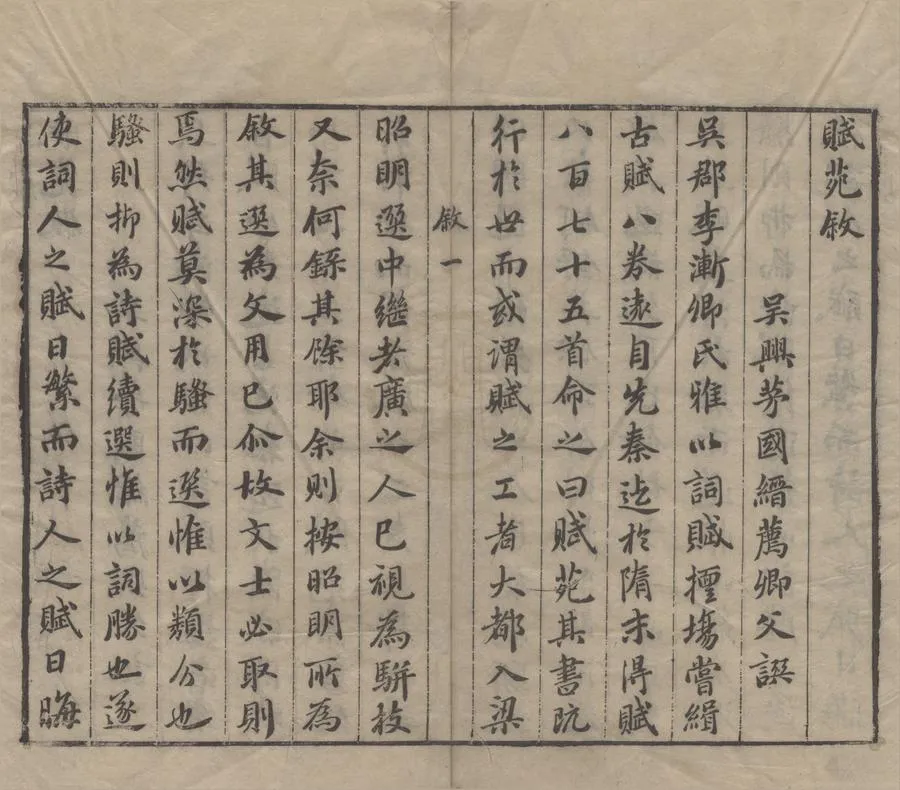 賦苑敘
吳興茅國縉薦卿父譔
吳郡李漸卿氏雅以詞賦擅場嘗緝
古賦八券遠自先秦迄於隋末得賦
八百七十五首命之曰賦苑其書既
行於世而或謂賦之工者大都入梁
敘一
昭明選中繼者廣之人已視為駢枝
又奈何錄其餘耶余則按昭明所為
敘其選為文用已侈故文士必取則
焉然賦莫深於騷而選惟以類分也
騷則抑為詩賦續選惟以詞勝也遂
使詞人之賦日繁而詩人之賦日晦